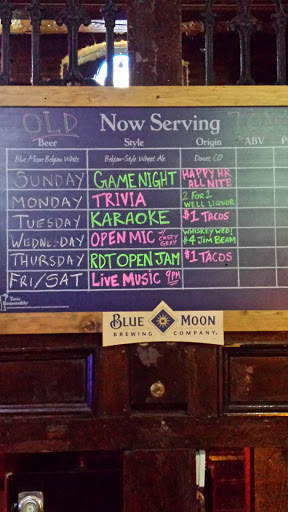 OLD Now Serving
Beer Style Origin ABV
Blue Moon Belgian White Belgian-Style Wheat Ale Denver, CO
SUNDAY GAME NIGHT HAPPY HR ALL NITE
MONDAY TRIVIA 2 FOR 1 WELL LIQUOR
TUESDAY KARAOKE $1 TACOS
WEDNESDAY OPEN MIC W/ CASEY GRAY WHISKEY WED! $4 JIM BEAM
THURSDAY RDT OPEN JAM $1 TACOS
FRI/SAT LIVE MUSIC 9PM
Taste Responsibly
BLUE MOON
BREWING COMPANY